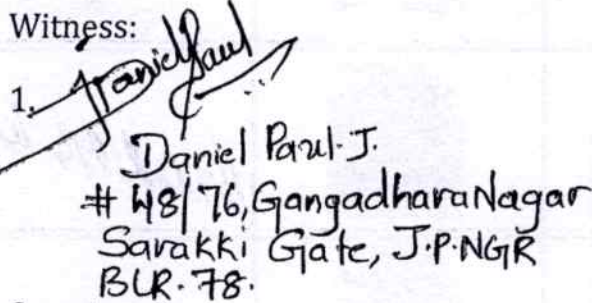 Witness:
1. Daniel Paul
Daniel Paul. J.
# 48/76, Gangadhara Nagar
Sarakki Gate, J.P. NGR
BLR. 78.